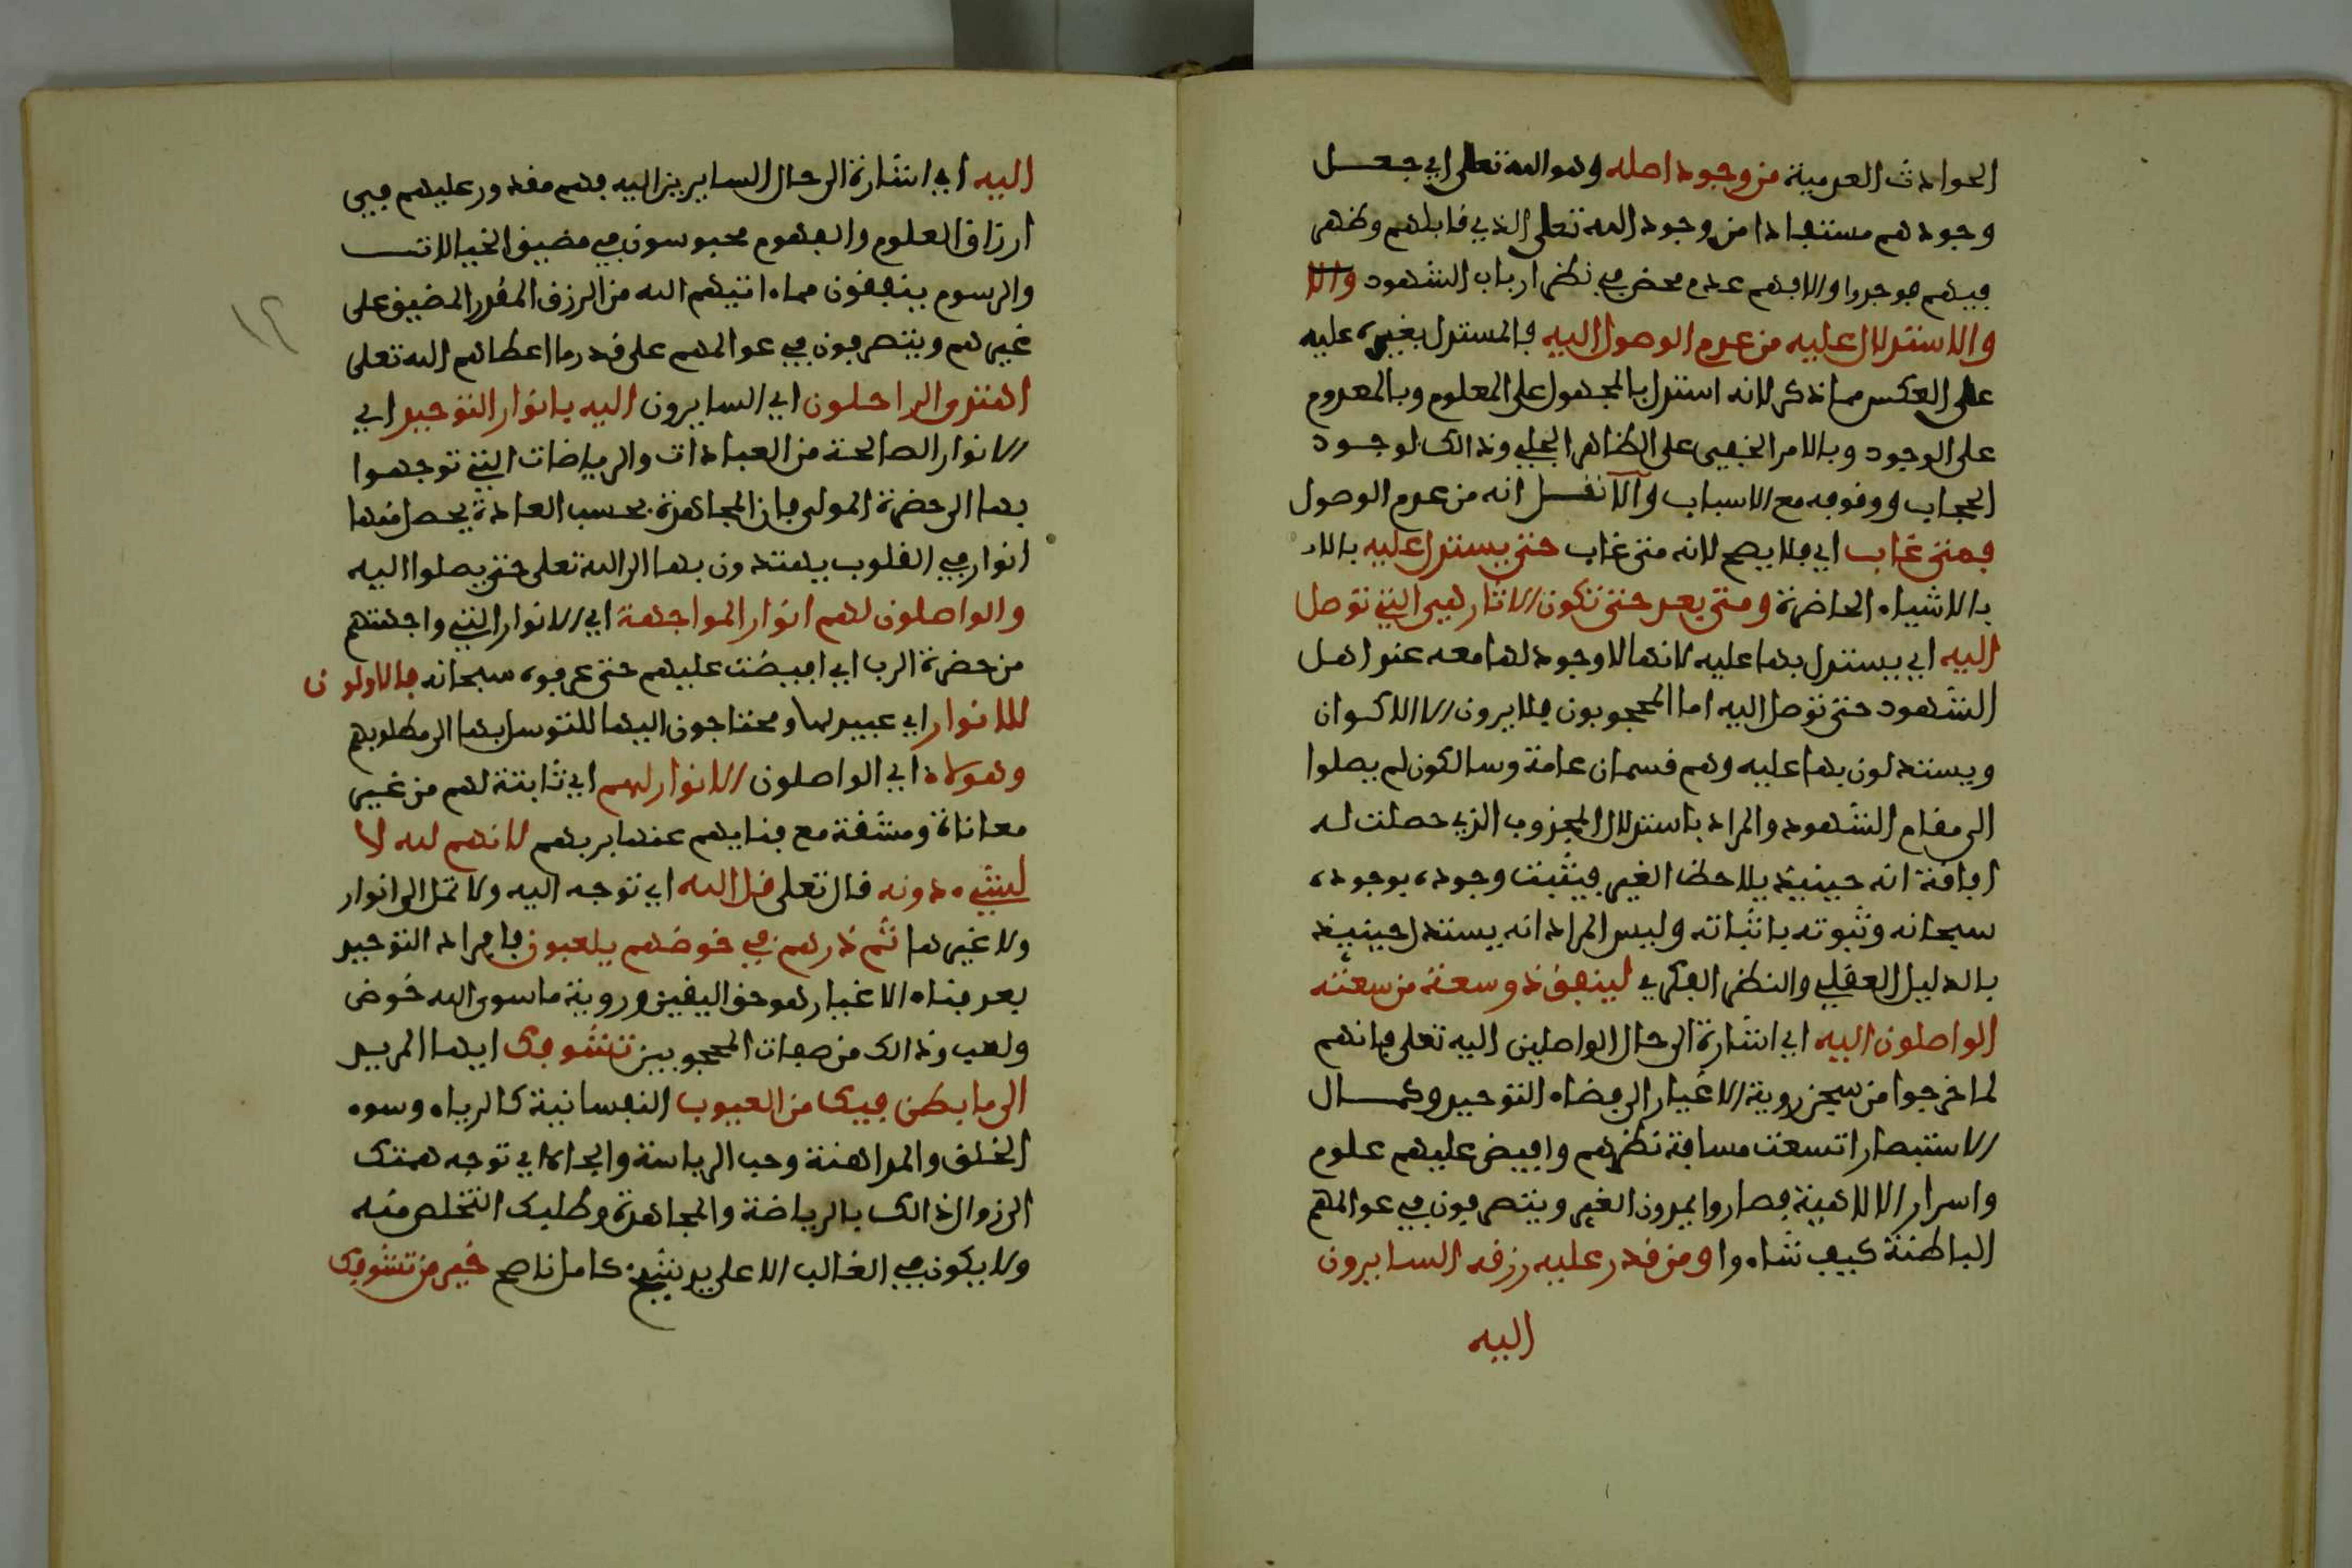 الحوادث العدمية من وجود اصله وهو الله تعلى اي جعل
وجودهم مستفادا من وجود الله تعلى الذي قابلهم وظهر
فيهم فوجدوا والا فهم عدم محض في نظر ارباب الشهود والا
والاستدلال عليه من عدم الوصول اليه فالمستدل بغيره عليه
على العكس مما ذكر لانه استدل بالمجهول على المعلوم وبالمعدوم
على الوجود وبالامر الخفي على الظاهر الجلي وذالك لوجود
الحجاب ووقوفه مع الاسباب وآلا نقل انه من عدم الوصول
فمتى غاب اي فلا يصح لانه متى غاب حتى يستدل عليه بالا
بالاشياء الحاضرة ومتى بعد حتى تكون الاثار هي التي توصل
اليه اي يستدل بها عليه لانها لا وجود لها معه عند اهل
الشهود حتى توصل اليه اما المحجوبون فلا يرون الا الاكوان
ويستدلون بها عليه وهم قسمان عامة وسالكون لم يصلوا
الى مقام الشهود والمراد باستدلال المجذوب الذي حصلت له
افاقة انه حينيذ يلاحظ الغير فيثبت وجوده بوجوده
سبحانه وثبوته باثباته وليس المراد انه يستدل حينيذ
بالدليل العقلي والنظر الفكري لينفق ذو سعة من سعته
الواصلون اليه اي اشارة الى حال الواصلين اليه تعلى فانهم
لما خرجوا من سجن روية الاغيار الى فضاء التوحيد وكمال
الاستبصار اتسعت مسافة نظرهم وافيض عليهم علوم
واسرار الالاهية فصاروا يمدون الغير ويتصرفون في عوالمهم
الباطنة كيف شاءوا ومن قدر عليه رزقه السايرون
اليه
اليه اي اشارة الى حال السايرين اليه فهم مقدور عليهم في
ارزاق العلوم والفهوم محبوسون في مضيق الخيالات
والرسوم ينفقون مما اتيهم الله من الرزق المقدر المضيق على
غيرهم ويتصرفون في عوالمهم على قدر ما اعطاهم الله تعلى
اهتدى الراحلون اي السايرون اليه بانوار التوجه اي
الانوار الصالحة من العبادات والرياضات التي توجهوا
بها الى حضرة المولى فان المجاهدة بحسب العادة يحصل منها
انوار في القلوب يهتدون بها الى الله تعلى حتى يصلوا اليه
والواصلون لهم انوار المواجهة اي الانوار التي واجهتهم
من حضرة الرب اي افيضت عليهم حتى عرفوه سبحانه فالاولون
للانوار اي عبيد لها ومحتاجون اليها للتوسل بها الى مطلوبهم
وهولاء اي الواصلون الانوار لهم اي ثابتة لهم من غير
معاناة ومشقة مع فنايهم عنها بربهم لانهم لله لا
لشيء دونه قال تعلى قل الله اي توجه اليه ولا تمل الى انوار
ولا غيرها ثم ذرهم في خوضهم يلعبون فافراد التوحيد
بعد فناء الاغيار هو حق اليقين وروية ما سوى الله خوض
ولعب وذالك من صفات المحجوبين تشوفك ايها المريد
الى ما بطن فيك من العيوب النفسانية كالرياء وسوء
الخلق والمداهنة وحب الرياسة والجاه اي توجه همتك
الى زوال ذالك بالرياضة والمجاهدة وطلبك التخلص منه
ولا يكون في الغالب الا على يد شيخ كامل ناصح خير من تشوفك
١٢